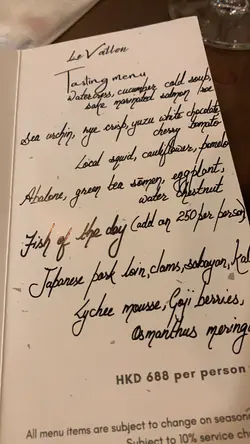 Le Vallon
Tasting menu
Watercress, cucumber cold soup,
sake marinated salmon roe
Sea urchin, rye crisp, yuzu white chocolate,
cherry tomato
Local squid, cauliflower, pomelo
Abalone, green tea sōmen, eggplant,
water chestnut
Fish of the day (add on 250 per person)
Japanese pork loin, clams, sakayori,
Lychee mousse, Goji berries,
Osmanthus mering
HKD 688 per person
All menu items are subject to change on season
Subject to 10% service ch